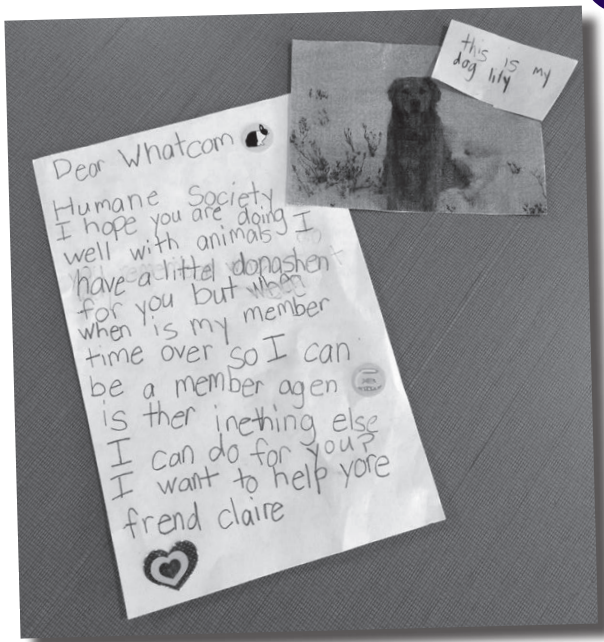 this is my
dog lily
Dear Whatcom
Humane Society
I hope you are doing
well with animals I
have a littel donashen
for you but when
when is my member
time over so I can
be a member agen
is ther inething else
I can do for you?
I want to help yore
frend claire